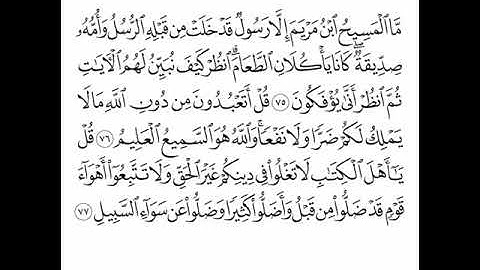 مَّا ٱلْمَسِيحُ ٱبْنُ مَرْيَمَ إِلَّا رَسُولٌ قَدْ خَلَتْ مِن قَبْلِهِ ٱلرُّسُلُ وَأُمُّهُۥ
صِدِّيقَةٌ ۖ كَانَا يَأْكُلَانِ ٱلطَّعَامَ ۗ ٱنظُرْ كَيْفَ نُبَيِّنُ لَهُمُ ٱلْءَايَٰتِ
ثُمَّ ٱنظُرْ أَنَّىٰ يُؤْفَكُونَ ٧٥ قُلْ أَتَعْبُدُونَ مِن دُونِ ٱللَّهِ مَا لَا
يَمْلِكُ لَكُمْ ضَرًّا وَلَا نَفْعًا ۚ وَٱللَّهُ هُوَ ٱلسَّمِيعُ ٱلْعَلِيمُ ٧٦ قُلْ
يَٰٓأَهْلَ ٱلْكِتَٰبِ لَا تَغْلُوا۟ فِى دِينِكُمْ غَيْرَ ٱلْحَقِّ وَلَا تَتَّبِعُوٓا۟ أَهْوَآءَ
قَوْمٍ قَدْ ضَلُّوا۟ مِن قَبْلُ وَأَضَلُّوا۟ كَثِيرًا وَضَلُّوا۟ عَن سَوَآءِ ٱلسَّبِيلِ ٧٧